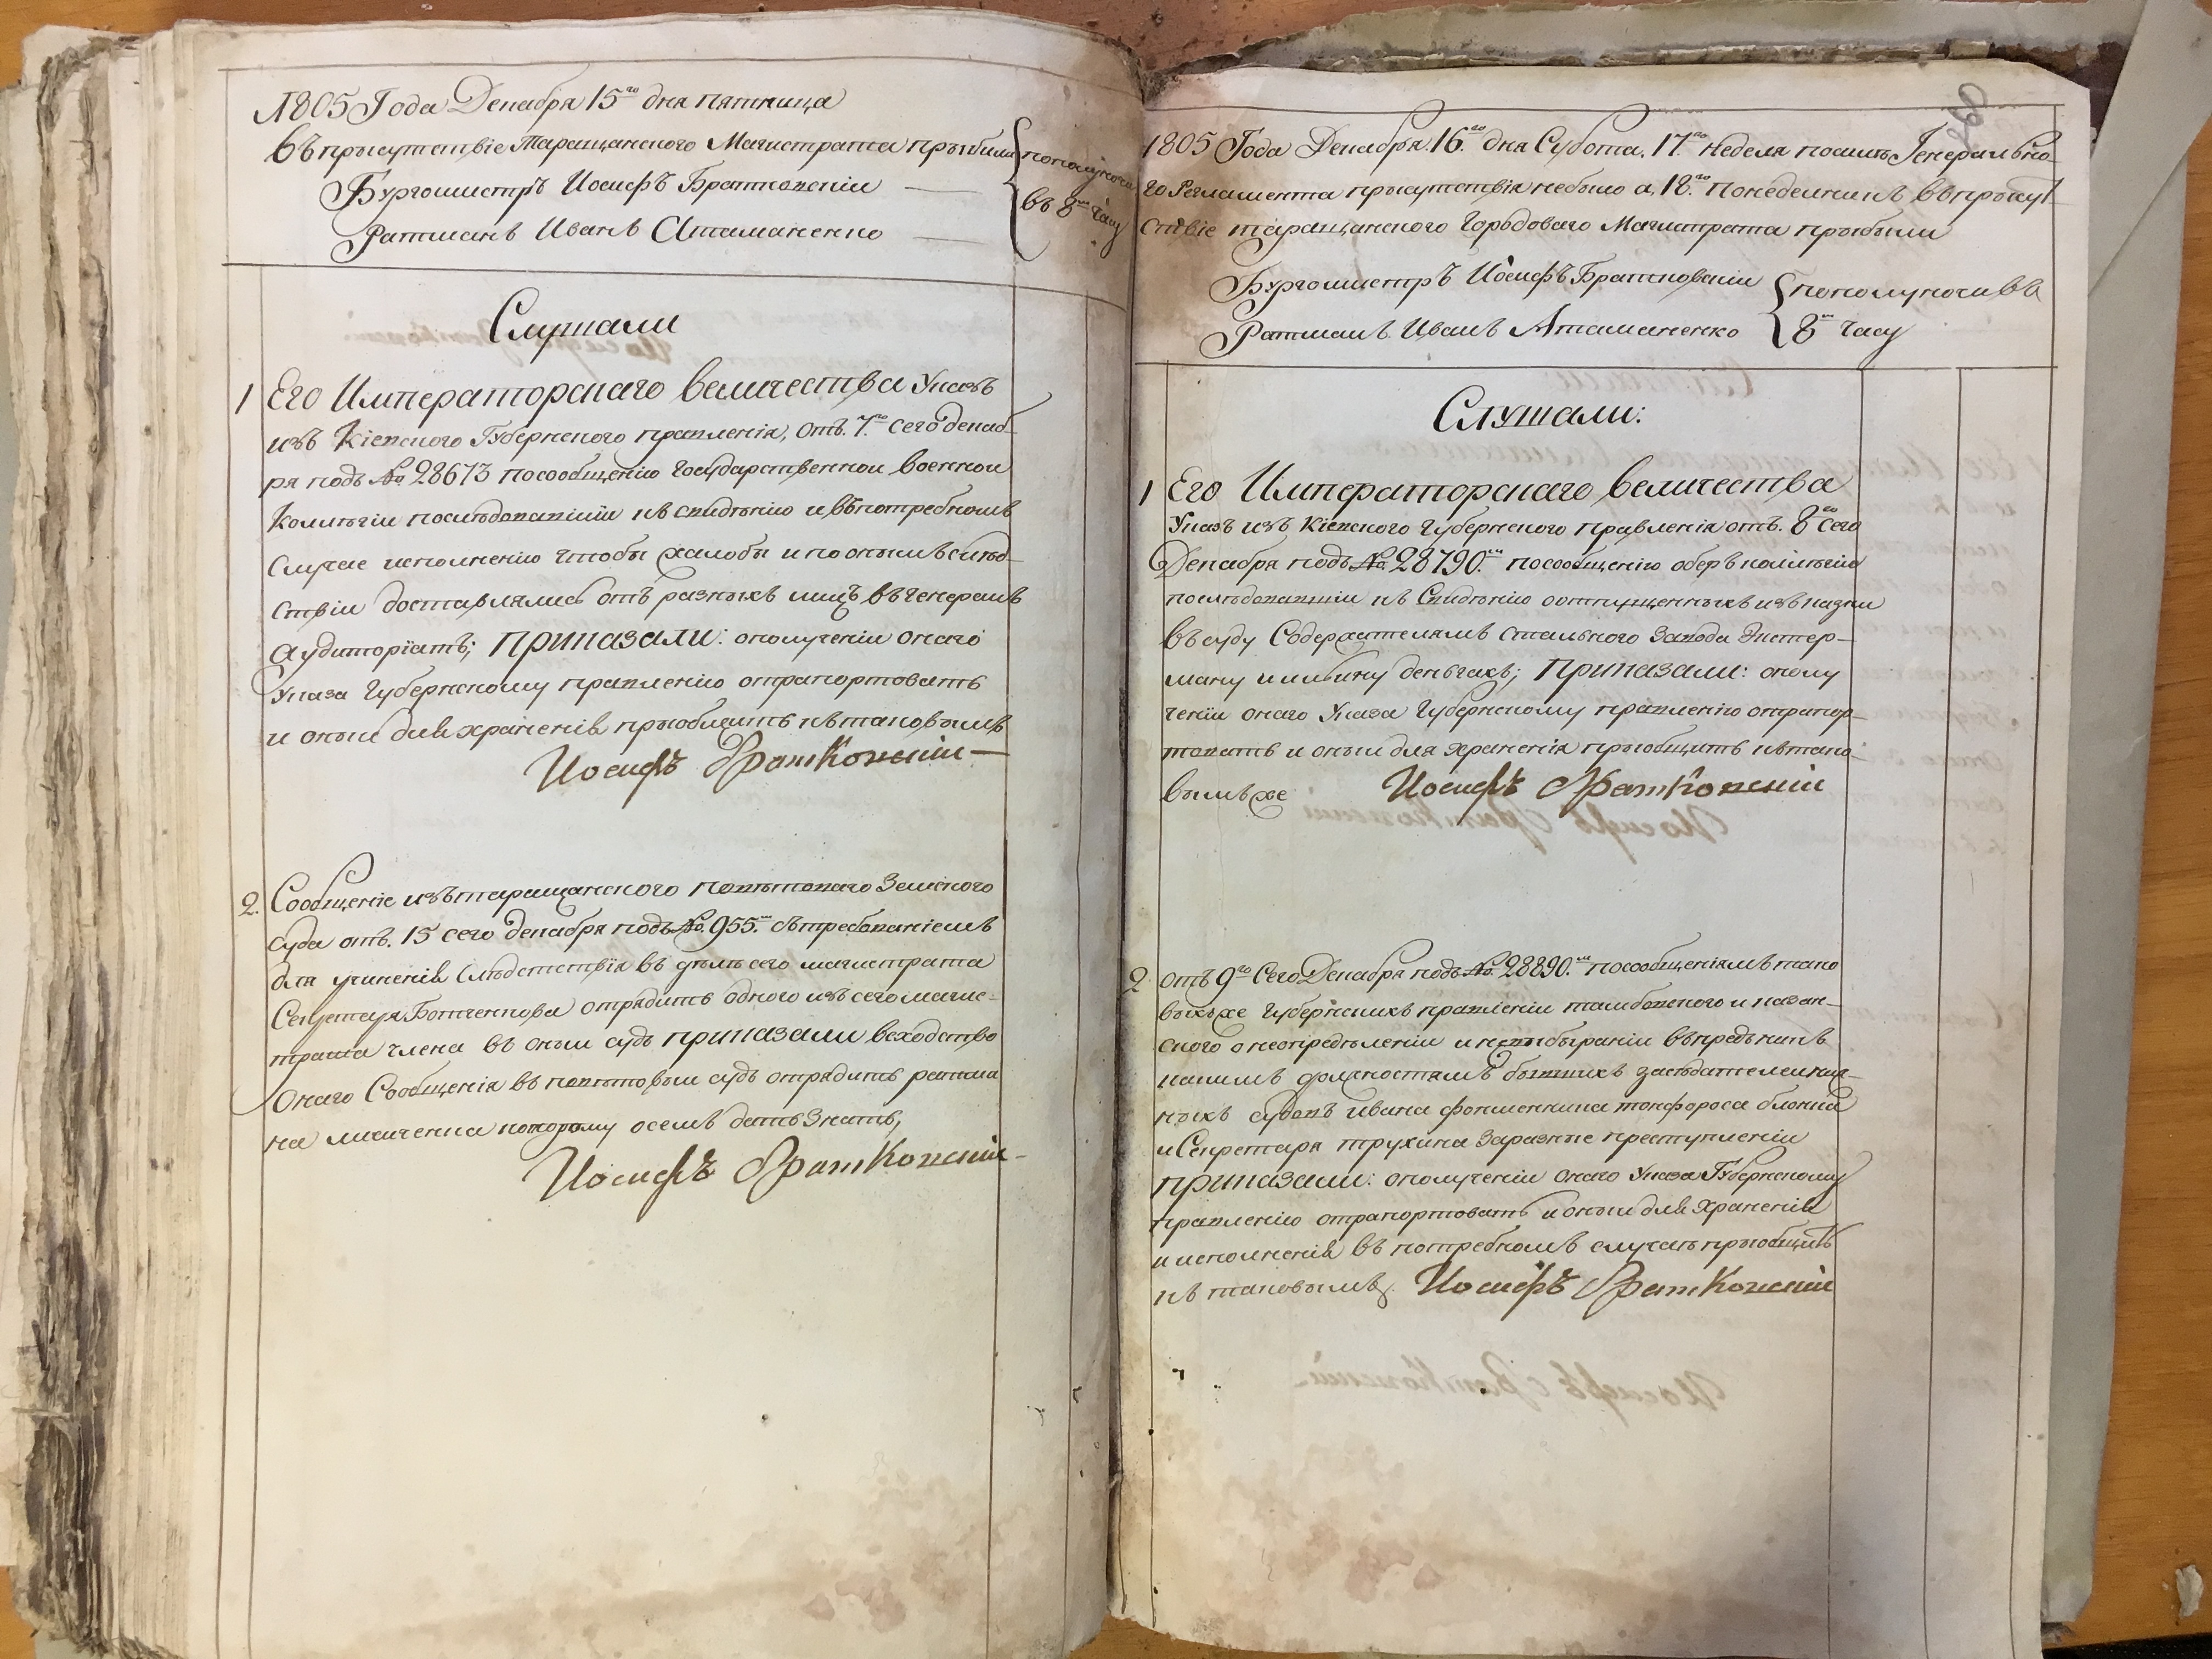 1805 Года Декабря 15го дня пятница
въ присутствіе Таращанского Магистрата прибыли
Бургомистръ Иосифъ Братковскіи
Ратманъ Иванъ Атаманенко
пополуночи
въ 8м часу
Слушали
1 Его Императорскаго величества Указъ
изъ Кіевского Губернского правленія, отъ. 7го сего декаб-
ря подъ № 28673 посообщенію государственнои военнои
Колигіи последовавшіи къ свидѣнію и въпотребномъ
случае исполнению чтобы жалобы и по онымъ след-
ствіи доставлялись отъ разныхъ лицъ въ генералъ
аудиторіатъ; приказали: ополученіи онаго
Указа Губернскому правленію отрапортовать
и оныи для храненія приобщить къ таковымъ
Иосифъ Братковскіи
2. Сообщеніе изъ таращанского повѣтоваго Земского
суда отъ. 15 сего декабря подъ №. 955м. съ требованіемъ
для учиненія Слѣдстствія въ дѣлѣ сего магистрата
Секретаря Ботченкова отрядить одного изъ сего магис-
трата члена въ оныи судъ приказали в сходство
онаго Сообщенія въ повѣтовыи судъ отрядить ратма
на которому осемъ дать знать,
Иосифъ Братковскіи
1805 Года Декабря. 16.го дня Субота. 17.го неделя посилъ Генерально-
го Регламента присутствія небыло а, 18.го понеделникъ въ присут-
ствіе таращанского Городоваго Магистрата прибыли
Бургомистръ Иосифъ Братковскіи
Ратманъ Иванъ Атаманенко
пополуночи въ
8м часу
Слушали:
1 Его Императорскаго величества
Указъ изъ Кіевского Губернского правленія отъ. 8го сего
Декабря подъ № 28790.м посообщенію оберъ колигіи
последовавшіи къ Свидѣнію оотпущенныхъ изъ казни
въ суду Содержителямъ стального завода Экстер-
ману и ильину деньгахъ; приказали: ополу
ченіи онаго Указа Губернскому правленію отрапор-
товать и оныи для храненія приобщить къ тако-
вымъ же Иосифъ Братковскіи
2 отъ 9го Сего Декабря подъ №. 28890.м посообщеніямъ тако
выхъ же Губернскихъ правленіи тамбовского и казан-
ского о неопредѣленіи и невыбираніи въпредь къ
какимъ должностямъ бывшихъ заседателеи
ныхъ судовъ ивана
и Секретаря трухина заразные преступленіи
приказали: ополученіи онаго Указа Губернскому
правленію отрапортовать и оныи для храненія
и исполненія въ потребномъ случаѣ приобщить
къ таковымъ. Иосифъ Братковскіи